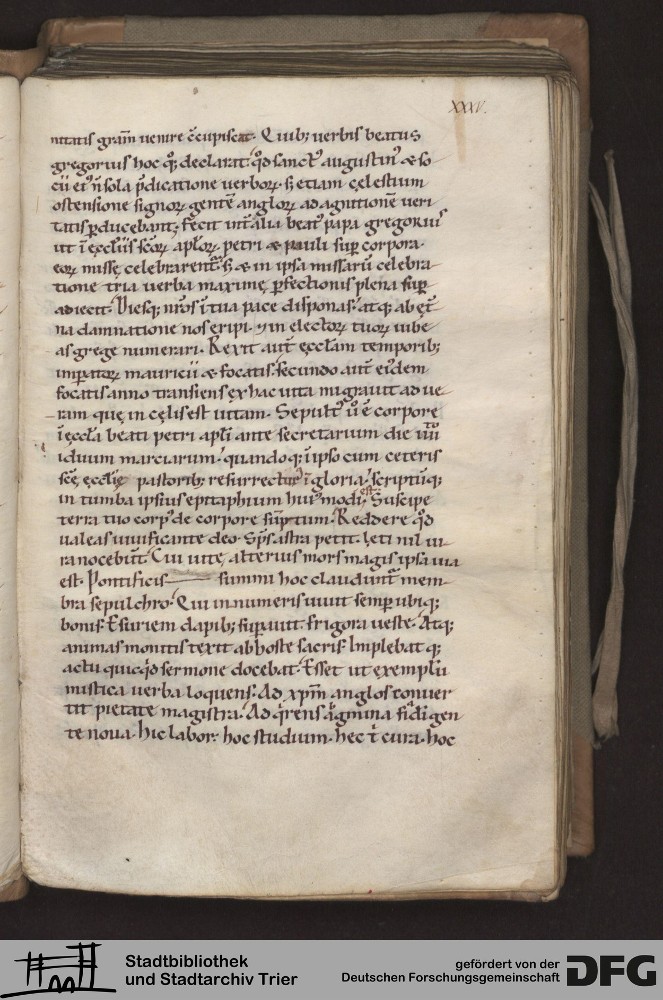 XXXV.
nitatis grām uenire c̄cupiscat. Quib; uerbis beatus
gregorius hoc q̄; declarat. q̊d sanctꝰ augustinꝰ & so
cii eiꝰ n̄ sola p̄dicatione uerboꝝ. s; etiam cęlestium
ostensione signoꝝ gentē angloꝝ ad agnitionē ueri
tatis ꝑducebant; Fecit int̄ alia beatꝰ papa gregoriuſ
ut ī ęccl̄iis sc̄oꝝ apl̄oꝝ petri & pauli suꝑ corpora
eoꝝ missę celebrarent᷑. s; & in ipsa missarū celebra
tione tria uerba maximę ꝑfectionis plena suꝑ
adiecit. Diesq; nr̄os ī tua pace disponas. atq; ab ęt̄
na damnatione nos eripi. ⁊ in electoꝝ tuoꝝ iube
as grege numerari. Rexit aut̄ ęccl̄am temporib;
imperatoꝝ mauricii & focatis. secundo aut̄ eiꝰdem
focatis anno transiens ex hac uita migrauit ad ue
ram quę in cęlis est uitam. Sepultꝰ u̅ ē corpore
ī ęccl̄a beati petri apl̄i ante secretarium die iiii
iduum marciarum. quandoq; ī ipso cum ceteris
scē ęccl̄ię pastorib; resurrecturꝰ ī gloria. scriptūq;
in tumba ipsius epitaphium huiꝰmodi est. Suscipe
terra tuo corpꝰ de corpore sūptum. Reddere q̊d
ualeas uiuificante deo. Sp̄s astra petit. leti nil iu
ra nocebūt. Cui uitę alterius mors magis ipsa uia
est. Pontificis summi hoc claudunt᷑ mem
bra sepulchro. Qui innumeris uiuit semꝑ ubiq;
bonis. Esuriem dapib; suꝑauit frigora ueste. Atq;
animas monitis texit ab hoste sacris. Implebatq;
actu quicq̊d sermone docebat. Esset ut exemplū
mistica uerba loquens. Ad xp̄m anglos conuer
tit pietate magistra. Adq̊rens agmina fidi gen
te noua. hic labor. hoc studium. hec t̄ cura. hoc
Stadtbibliothek
und Stadtarchiv Trier
gefördert von der
Deutschen Forschungsgemeinschaft
DFG